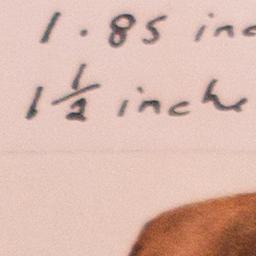 1.85 inc
1 1/2 inche